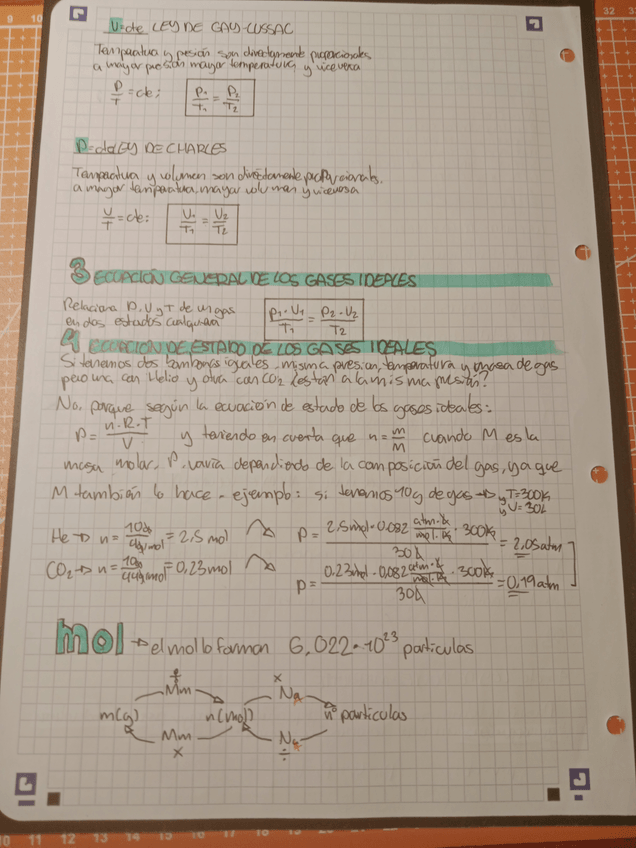 V=cte LEY DE GAY-LUSSAC
Temperatura y presión son directamente proporcionales
a mayor presión mayor temperatura y viceversa
P/T = cte; P1/T1 = P2/T2
P=cte LEY DE CHARLES
Temperatura y volumen son directamente proporcionales.
a mayor temperatura, mayor volumen y viceversa
V/T = cte: V1/T1 = V2/T2
3 ECUACIÓN GENERAL DE LOS GASES IDEALES
Relaciona P, V y T de un gas
en dos estados cualquiera
P1·V1/T1 = P2·V2/T2
4 ECUACION DE ESTADO DE LOS GASES IDEALES
Si tenemos dos iguales, misma presion, temperatura y masa de gas
pero una con Helio y otra con CO2 ¿están a la misma presión?
No, porque según la ecuación de estado de los gases ideales:
P = n·R·T/V y teniendo en cuenta que n = m/M cuando M es la
masa molar. P. varía dependiendo de la composición del gas, ya que
M también lo hace - ejemplo: si tenemos 10g de gas → y T=300K
y V=30L
He → n = 10g/4g/mol = 2,5 mol P = 2,5mol·0,082 atm·L/mol·K · 300K/30L = 2,05atm
CO2 → n = 10g/44g/mol = 0,23mol P = 0,23mol·0,082 atm·L/mol·K · 300K/30L = 0,19atm
mol → el mol lo forman 6,022·10^23 partículas
÷ ×
Mm Na
m(g) n(mol) nº partículas
Mm Na
× ÷
32 33
10 11 12 13 14 15 16 17 18